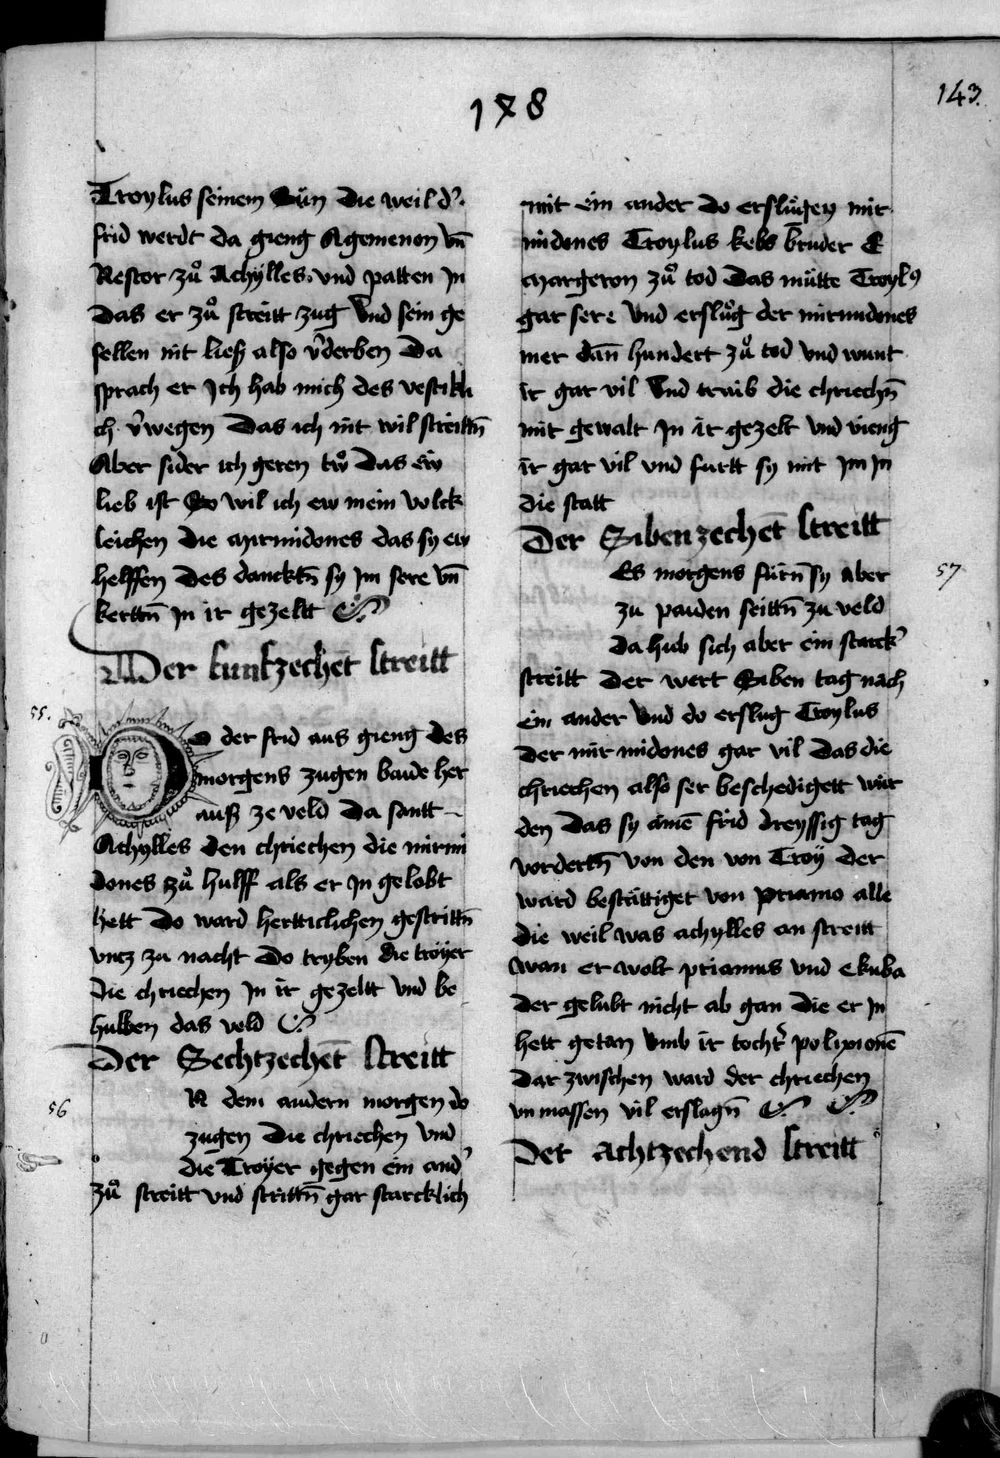 178
143.
Troylus seinem Sün die weil dˀ
frid werdt da gieng Agemenon vn̄
Nestor zů Achylles vnd patten Jn
das er zů streitt zug Vnd sein ge
sellen nit ließ also vˀderben Da
sprach er Jch hab mich des vestikli
ch vˀwegen Das ich nit wil streittn̄
Aber sider ich geren tů das ew
lieb ist So wil ich ew mein volck
leichen die mirmidones das sy ew
helffen Des dancktn̄ sy Jm sere vn̄
kerttn̄ Jn ir gezeltt
Der funfzechet̄ streitt
55.
Do der frid aus gieng des
morgens zugen baide her
auß ze veld Da santt
Achylles den chriechen die mirmi
dones zů hulff als er Jn gelobt
hett Do ward hertticlichen gestrittn̄
vncz zu nacht Do tryben die troyer
die chriechen Jn ir gezeltt vnd be
hulben das veld
Der Sechtzechet̄ streitt
56
N dem andern morgen do
zugen die chriechen vnd
die Troyer gegen ein andˀ
zů streitt vnd strittn̄ gar starcklich
mit ein ander do erslůgen mir
midones Troylus kebs bruder
Margeron zů tod Das mütte Troylꝰ
gar sere Vnd erslůg der mirmidones
mer dan̄ hundert zů tod vnd wunt
ir gar vil Vnd traib die chriechn̄
mit gewalt Jn ir gezelt vnd vieng
ir gar vil vnd furtt sy mit Jm Jn
die statt
Der Sibenzechet̄ streitt
57
Es morgens fürn̄ sy aber
zu paiden seittn̄ zu veld
da hub sich aber ein starckˀ
streitt der wert Siben tag nach
ein ander Vnd do erslug Troylus
der mirmidones gar vil das die
chriechen also ser beschedigett wur
den Das sy ainē frid dreyssig tag
vordertn̄ von den von Troÿ der
ward bestättiget von priamo alle
die weil was achylles an streitt
wan er wolt priamus vnd Ekuba
der gelubt nicht ab gan die er Jn
hett getan vmb ir tochtˀ polixionē
Dar zwischen ward der chriechen
vn massen vil erslagn̄
Der achtzechend streitt